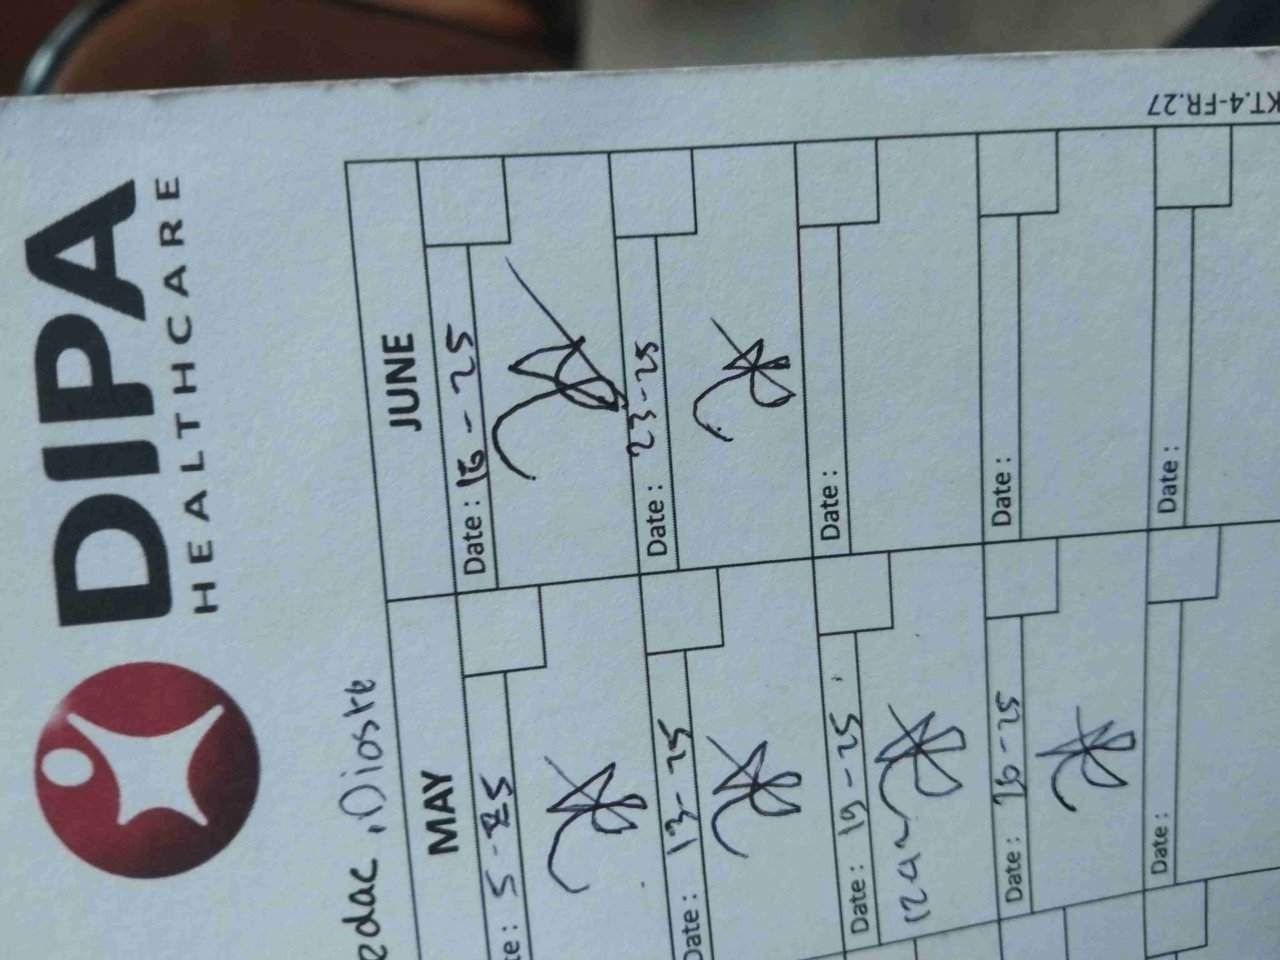 DIPA
HEALTHCARE
edac, Dioste
MAY
JUNE
te: 5-25
Date: 16-25
Date: 13-25
Date: 23-25
Date: 19-25
Date:
Date: 26-25
Date:
Date:
Date:
KT.4-FR.27